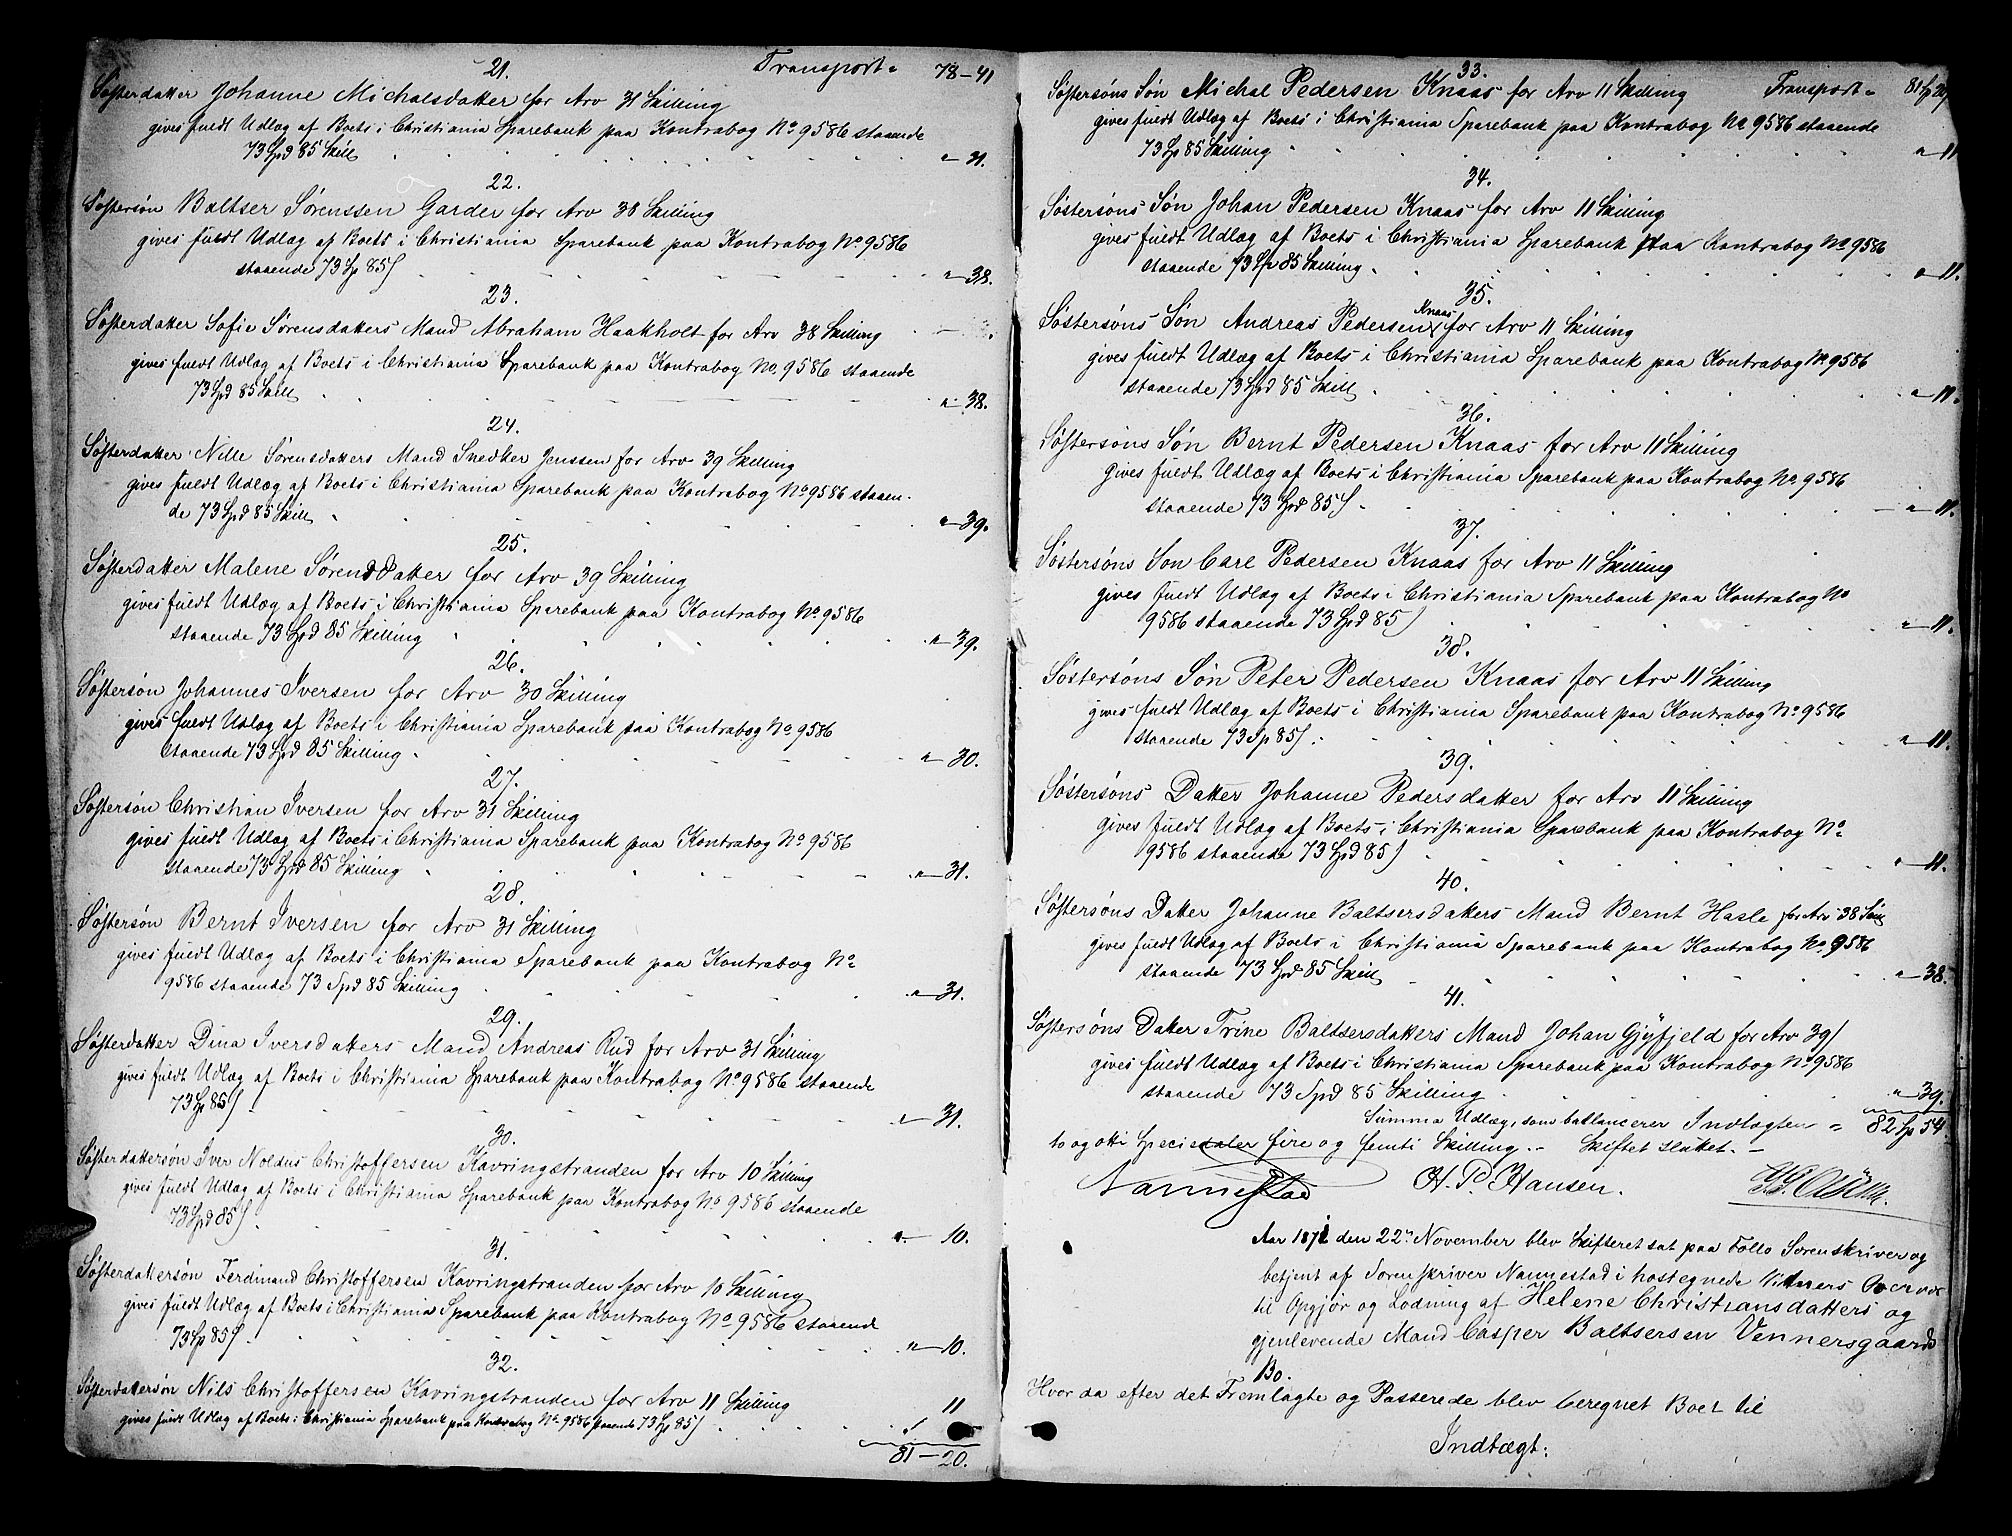 21. Transport " 78-41
Søsterdatter Johanne Michalsdatter for Arv 31 Skilling
gives fuldt Udlæg af Boets i Christiania Sparebank paa Kontrabog No 9586 staaende
73 Spd 85 Skill " - 31.
22.
Søstersøn Baltser Sørenssen Garder for Arv 38 Skilling
gives fuldt Udlæg af Boets i Christiania Sparebank paa Kontrabog No 9586
staaende 73 Sp 85 ʃ " - 38.
23.
Søsterdatter Sofie Sørensdatters Mand Abraham Haakholt for Arv 38 Skilling
gives fuldt Udlæg af Boets i Christiania Sparebank paa Kontrabog No 9586 staaende
73 Spd 85 Skill " - 38.
24.
Søsterdatter Nille Sørensdatters Mand Snedker Jenssen for Arv 39 Skilling
gives fuldt Udlæg af Boets i Christiania Sparebank paa Kontrabog No 9586 staaen-
de 73 Spd 85 Skill " - 39.
25.
Søsterdatter Malene Sørensdatter for Arv 39 Skilling
gives fuldt Udlæg af Boets i Christiania Sparebank paa Kontrabog No 9586
staaende 73 Spd 85 Skilling " - 39.
26.
Søstersøn Johannes Iversen for Arv 30 Skilling
gives fuldt Udlæg af Boets i Christiania Sparebank paa Kontrabog No 9586
staaende 73 Spd 85 Skilling " - 30.
27.
Søstersøn Christian Iversen for Arv 31 Skilling
gives fuldt Udlæg af Boets i Christiania Sparebank paa Kontrabog No 9586
staaende 73 Spd 85 Skilling " - 31.
28.
Søstersøn Bernt Iversen for Arv 31 Skilling
gives fuldt Udlæg af Boets i Christiania Sparebank paa Kontrabog No
9586 staaende 73 Spd 85 Skilling " - 31.
29.
Søsterdatter Dina Iversdatters Mand Andreas Rud for Arv 31 Skilling
gives fuldt Udlæg af Boets i Christiania Sparebank paa Kontrabog No 9586 staaende
73 Sp 85 ʃ " - 31.
30.
Søsterdattersøn Iver Noldus Christoffersen Kavringstranden for Arv 10 Skilling
gives fuldt Udlæg af Boets i Christiania Sparebank paa Kontrabog No 9586 staaende
73 Spd 85 ʃ " - 10.
31.
Søsterdattersøn Ferdinand Christoffersen Kavringstranden for Arv 10 Skilling
gives fuldt Udlæg af Boets i Christiania Sparebank paa Kontrabog No 9586 staaende
73 Sp 85 ʃ " - 10.
32.
Søsterdattersøn Nils Christoffersen Kavringstranden for Arv 11 Skilling
gives fuldt Udlæg af Boets i Christiania Sparebank paa Kontrabog No 9586 staaende 73 Sp 85 ʃ 11
81-20.
33.
Søstersøns Søn Michal Pedersen Knaas for Arv 11 Skilling Transport " 81 Sp 20
gives fuldt Udlæg af Boets i Christiania Sparebank paa Kontrabog No 9586 staaende
73 Sp 85 Skilling " - 11
34.
Søstersøns Søn Johan Pedersen Knaas for Arv 11 Skilling
gives fuldt Udlæg af Boets i Christiania Sparebank paa Kontrabog No 9586
staaende 73 Sp 85 Skilling " - 11.
35.
Søstersøns Søn Andreas Pedersen Knaas for Arv 11 Skilling
gives fuldt Udlæg af Boets i Christiania Sparebank paa Kontrabog No 9586
staaende 73 Spd 85 Skill " - 11.
36.
Søstersøns Søn Bernt Pedersen Knaas for Arv 11 Skilling
gives fuldt Udlæg af Boets i Christiania Sparebank paa Kontrabog No 9586
staaende 73 Spd 85 ʃ " - 11.
37.
Søstersøns Søn Carl Pedersen Knaas for Arv 11 Skilling
gives fuldt Udlæg af Boets i Christiania Sparebank paa Kontrabog No
9586 staaende 73 Spd 85 ʃ " - 11.
38.
Søstersøns Søn Peter Pedersen Knaas for Arv 11 Skilling
gives fuldt Udlæg af Boets i Christiania Sparebank paa Kontrabog No 9586
staaende 73 Sp 85 ʃ " - 11.
39.
Søstersøns Datter Johanne Pedersdatter for Arv 11 Skilling
gives fuldt Udlæg af Boets i Christiania Sparebank paa Kontrabog No
9586 staaende 73 Spd 85 ʃ " - 11.
40.
Søstersøns Datter Johanne Baltsersdatters Mand Bernt Hasle for Arv 38 Skill
gives fuldt Udlæg af Boets i Christiania Sparebank paa Kontrabog No 9586
staaende 73 Spd 85 Skill " - 38.
41.
Søstersøns Datter Trine Baltsersdatters Mand Johan Gjyfjeld for Arv 39 ʃ
gives fuldt Udlæg af Boets i Christiania Sparebank paa Kontrabog No 9586
staaende 73 Spd 85 Skilling " - 39.
Summa Udlæg, som ballancerer Indtægten " 82 Sp 54
to og otti Speciedaler fire og femti Skilling. - Skiftet sluttet. -
Nannestad H. P. Hansen.
Aar 1871 den 22de November blev Skifteret sat paa Follo Sorenskriver og
betjent af Sorenskriver Nannestad i hostegnede Vidners Overvær
til Opgjør og Lodning af Helene Christiansdatters og
gjenlevende Mand Casper Baltsersen Vennersgaards
Bo.
Hvorda efter det Fremlagte og Passerede blev beregnet Boet til
Indtægt: